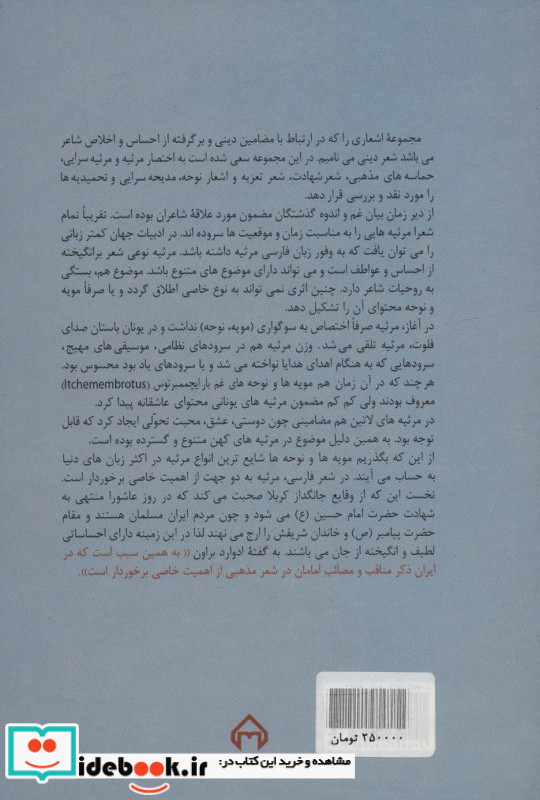 مجموعهٔ اشعاری را که در ارتباط با مضامین دینی و برگرفته از احساس و اخلاص شاعر
می باشد شعر دینی می نامیم. در این مجموعه سعی شده است به اختصار مرثیه و مرثیه سرایی،
حماسه های مذهبی، شعرشهادت، شعر تعزیه و اشعار نوحه، مدیحه سرایی و تحمیدیه ها
را مورد نقد و بررسی قرار دهد.
از دیر زمان بیان غم و اندوه گذشتگان مضمون مورد علاقهٔ شاعران بوده است. تقریباً تمام
شعرا مرثیه هایی را به مناسبت زمان و موقعیت ها سروده اند. در ادبیات جهان کمتر زبانی
را می توان یافت که به وفور زبان فارسی مرثیه داشته باشد. مرثیه نوعی شعر برانگیخته
از احساس و عواطف است و می تواند دارای موضوع های متنوع باشد. موضوع هم، بستگی
به روحیات شاعر دارد. چنین اثری نمی تواند به نوع خاصی اطلاق گردد و یا صرفاً مویه
و نوحه محتوای آن را تشکیل دهد.
در آغاز، مرثیه صرفاً اختصاص به سوگواری (مویه، نوحه) نداشت و در یونان باستان صدای
فلوت، مرثیه تلقی می شد. وزن مرثیه هم در سرودهای نظامی، موسیقی های مهیج،
سرودهایی که به هنگام اهدای هدایا نواخته می شد و یا سرودهای یاد بود محسوس بود.
هر چند که در آن زمان هم مویه ها و نوحه های غم بار ایچممبرتوس (Itchemembrotus)
معروف بودند ولی کم کم مضمون مرثیه های یونانی محتوای عاشقانه پیدا کرد.
در مرثیه های لاتین هم مضامینی چون دوستی، عشق، محبت تحوّلی ایجاد کرد که قابل
توجه بود. به همین دلیل موضوع در مرثیه های کهن متنوع و گسترده بوده است.
از این که بگذریم مویه ها و نوحه ها شایع ترین انواع مرثیه در اکثر زبان های دنیا
به حساب می آیند. در شعر فارسی، مرثیه به دو جهت از اهمیت خاصی برخوردار است.
نخست این که از وقایع جانگداز کربلا صحبت می کند که در روز عاشورا منتهی به
شهادت حضرت امام حسین (ع) می شود و چون مردم ایران مسلمان هستند و مقام
حضرت پیامبر (ص) و خاندان شریفش را ارج می نهند لذا در این زمینه دارای احساساتی
لطیف و انگیخته از جان می باشند. به گفتهٔ ادوارد براون «به همین سبب است که در
ایران ذکر مناقب و مصائب امامان در شعر مذهبی از اهمیت خاصی برخوردار است».
۲۵۰۰۰۰ تومان
مشاهده و خرید این کتاب در:
iidebook.ir